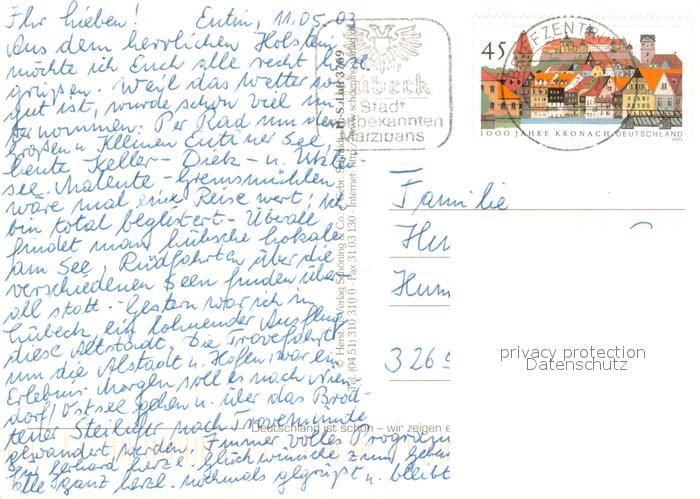 Ihr lieben! Eutin, 11.05.03
Aus dem herrlichen Holstein
möchte ich Euch alle recht herzl.
grüßen. Weil das Wetter so
gut ist, wurde schon viel un-
ternommen. Per Rad um den
großen u. kleinen Eutiner See,
heute Keller- Diek- u. Uklei-
see. Malente-Gremsmühlen
wäre mal eine Reise wert; ich
bin total begeistert. Überall
findet man hübsche Lokale
am See, Rundfahrten über die
verschiedenen Seen finden über-
all statt. Gestern war ich in
Lübeck, ein lohnender Ausflug
diese Altstadt. Die Travefahrt
um die Altstadt u. Hafen war ein
Erlebnis. Morgen soll es nach Nien-
dorf/Ostsee gehen u. über das Brod-
tener Steilufer nach Travemünde
gewandert werden. Immer volles Programm
Erhard herzl. Glückwünsche zum
alle ganz herzl. nochmals gegrüßt u. bleibt
Lübeck
Stadt
bekannten
Marzipans
BRIEFZENTRUM
45
1000 JAHRE KRONACH DEUTSCHLAND
2003
© Herst. u. Verlag Schöning & Co. + Gebr. Schmidt
Tel. (04 51) 310 310 0 · Fax 31 03 130 · Internet: http://www.schoening-verlag
Deutschland ist schön – wir zeigen e
Familie
privacy protection
Datenschutz